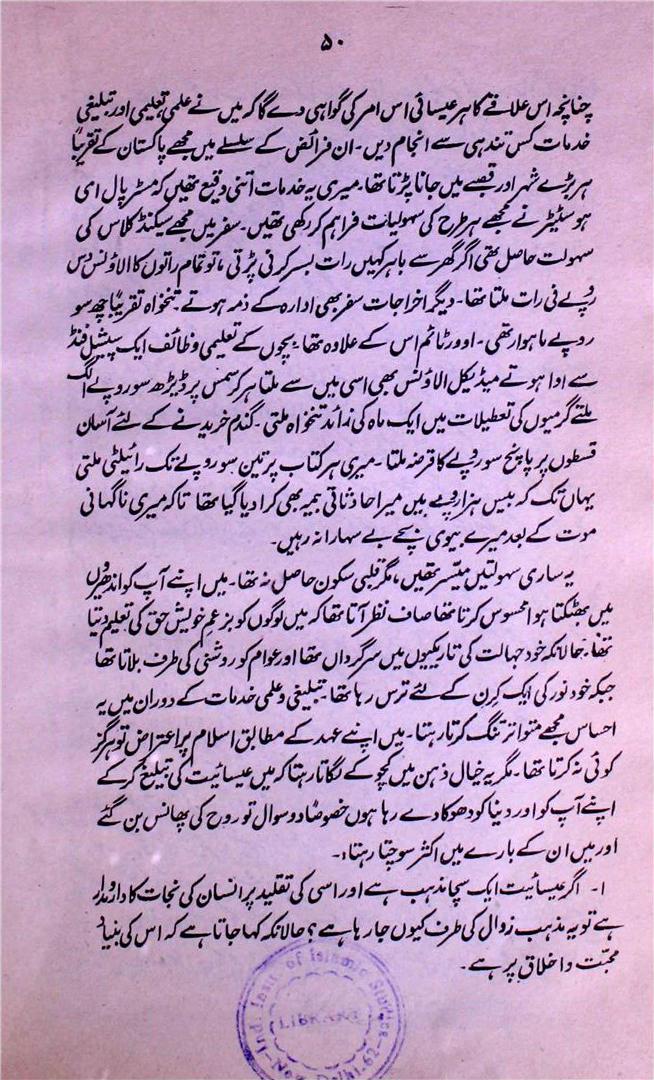 ۵۰
چنانچہ اس علاقے کا ہر عیسائی اس امر کی گواہی دے گا کہ میں نے علمی، تعلیمی اور تبلیغی
خدمات کس تندہی سے انجام دیں۔ ان فرائض کے سلسلے میں مجھے پاکستان کے تقریباً
ہر بڑے شہر اور قصبے میں جانا پڑتا تھا۔ میری یہ خدمات اتنی وقیع تھیں کہ مسٹر پال ای
ہوسٹیٹر نے مجھے ہر طرح کی سہولیات فراہم کر رکھی تھیں۔ سفر میں مجھے سیکنڈ کلاس کی
سہولت حاصل تھی اگر گھر سے باہر کہیں رات بسر کرنی پڑتی، تو تمام راتوں کا الاؤنس دس
روپے فی رات ملتا تھا۔ دیگر اخراجات سفر بھی ادارہ کے ذمہ ہوتے۔ تنخواہ تقریباً چھ سو
روپے ماہوار تھی۔ اوور ٹائم اس کے علاوہ تھا۔ بچوں کے تعلیمی وظائف ایک سپیشل فنڈ
سے ادا ہوتے میڈیکل الاؤنس بھی اسی میں سے ملتا ہر کرسمس پر ڈیڑھ سو روپے الگ
ملتے گرمیوں کی تعطیلات میں ایک ماہ کی زائد تنخواہ ملتی۔ گندم خریدنے کے لئے آسان
قسطوں پر پانچ سو روپے کا قرضہ ملتا۔ میری ہر کتاب پر تین سو روپے تک رائیلٹی ملتی
یہاں تک کہ بیس ہزار روپے میں میرا حادثاتی بیمہ بھی کرا دیا گیا تھا تاکہ میری ناگہانی
موت کے بعد میرے بیوی بچے بے سہارا نہ رہیں۔
یہ ساری سہولتیں میسّر تھیں، مگر قلبی سکون حاصل نہ تھا۔ میں اپنے آپ کو اندھیروں
میں بھٹکتا ہوا محسوس کرتا تھا صاف نظر آتا تھا کہ میں لوگوں کو بزعمِ خویش حق کی تعلیم دیتا
تھا۔ حالانکہ خود جہالت کی تاریکیوں میں سرگرداں تھا اور عوام کو روشنی کی طرف بلاتا تھا
جبکہ خود نور کی ایک کرن کے لئے ترس رہا تھا۔ تبلیغی و علمی خدمات کے دوران میں یہ
احساس مجھے متواتر تنگ کرتا رہتا۔ میں اپنے عہد کے مطابق اسلام پر اعتراض تو ہرگز
کوئی نہ کرتا تھا۔ مگر یہ خیال ذہن میں کچوکے لگاتا رہتا کہ میں عیسائیت کی تبلیغ کر کے
اپنے آپ کو اور دنیا کو دھوکا دے رہا ہوں خصوصاً دو سوال تو روح کی پھانس بن گئے
اور میں ان کے بارے میں اکثر سوچتا رہتا:۔
۱۔ اگر عیسائیت ایک سچا مذہب ہے اور اسی کی تقلید پر انسان کی نجات کا دارومدار
ہے تو یہ مذہب زوال کی طرف کیوں جا رہا ہے؟ حالانکہ کہا جاتا ہے کہ اس کی بنیاد
محبّت و اخلاق پر ہے۔
Ind. Instt. of Islamic Studies
LIBRARY
New Delhi.62